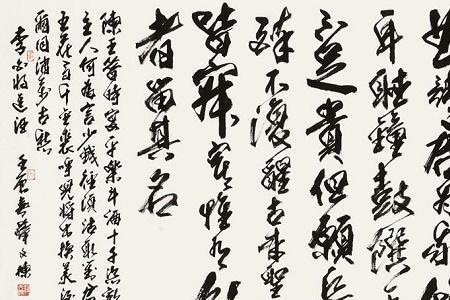 曲請君為我
耳聽鐘鼓饌
不足貴但願長
醉不復醒古來聖
皆寂寞惟有飲
者留其名
陳王昔時宴平樂斗酒十千恣歡
主人何為言少錢徑須沽取對君
五花馬千金裘呼兒將出換美酒
爾同銷萬古愁
李白將進酒